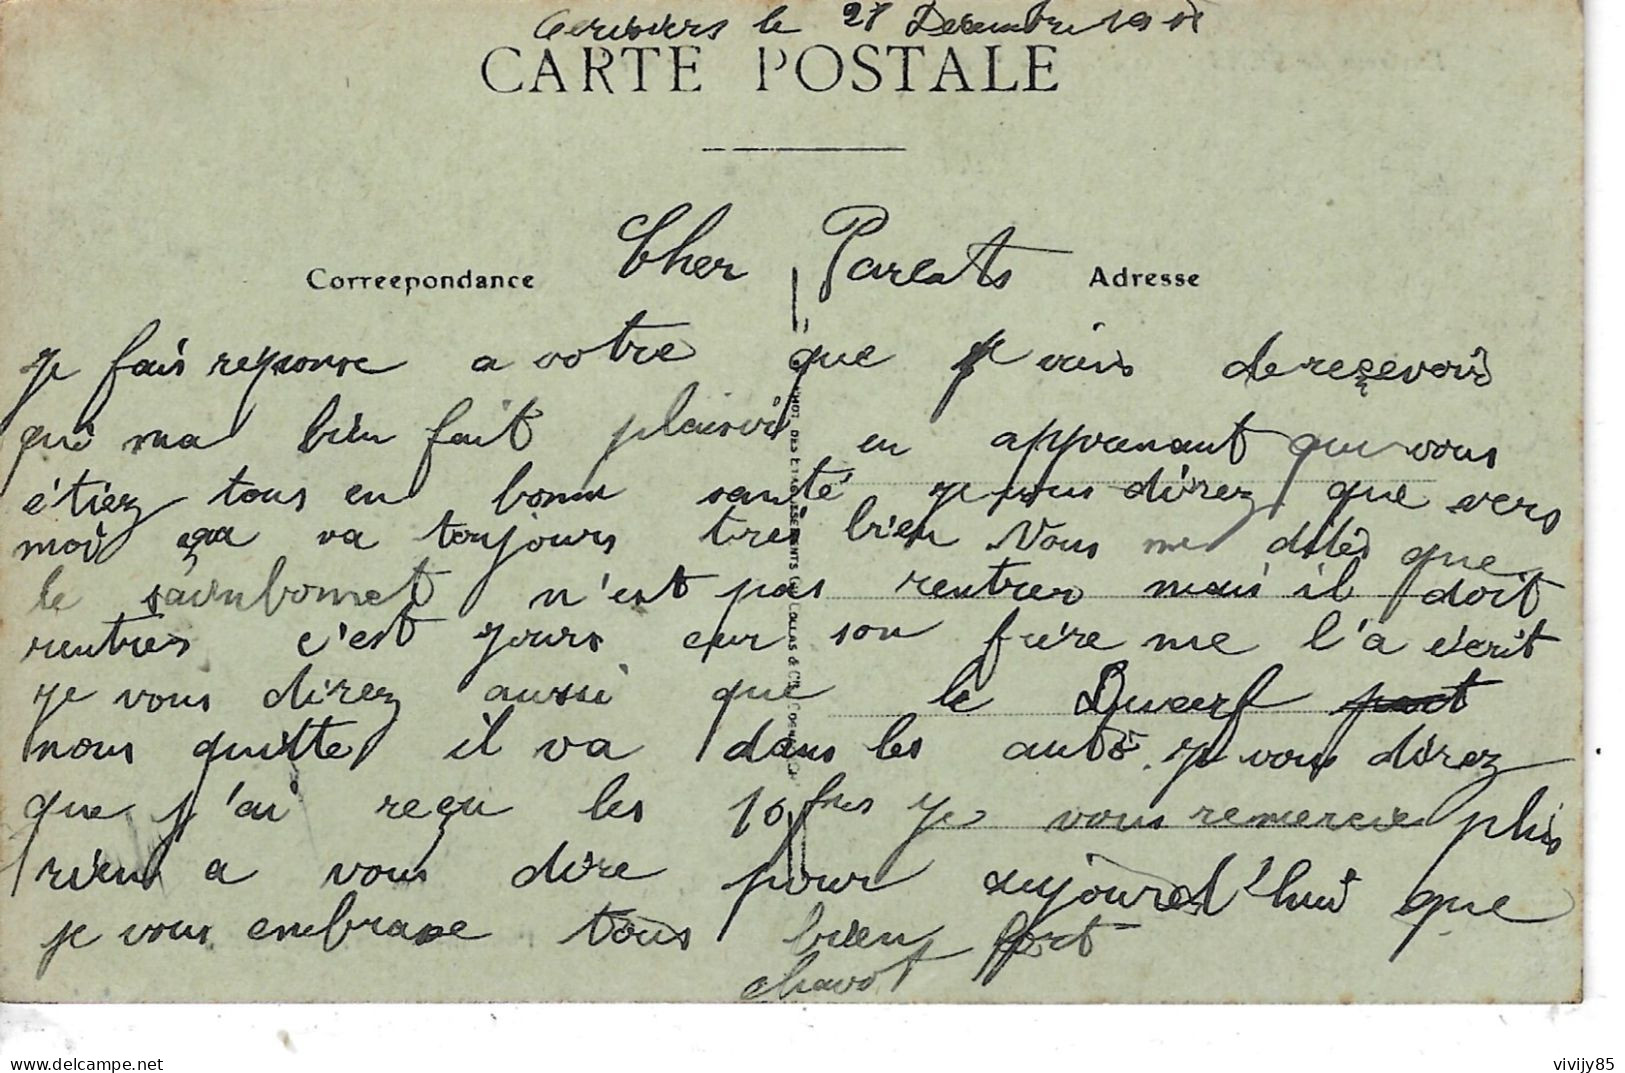 le 27 Décembre 19
CARTE POSTALE
Cher Parents
Correspondance
Adresse
je fais réponse a votre que je viens de reçevoir
qui ma bien fait plaisir en apprenant que vous
étiez tous en bonne santé je vous direz que vers
moi ça va toujours tres bien Vous me dites que
le n'est pas rentrer mais il doit
rentrer c'est jours car son frère me l'a écrit
je vous direz aussi que le
nous quitte il va dans les auto. je vous direz
que j'ai reçu les 10 frcs je vous remercie plus
rien a vous dire pour aujourd'hui que
je vous embrasse tous bien fort
chavot
PHOT. DES ETABLISSEMENTS
vivijy85